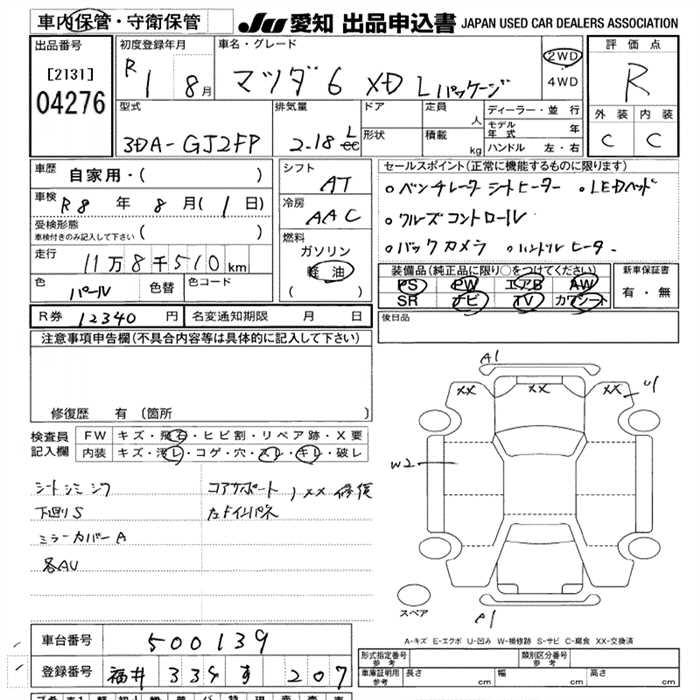 車内保管・守衛保管
JU 愛知 出品申込書 JAPAN USED CAR DEALERS ASSOCIATION
出品番号
[2131]
04276
初度登録年月
R 1 8月
車名・グレード
マツダ6 XD Lパッケージ
2WD
4WD
評価点
R
外装 内装
C C
型式
3DA-GJ2FP
排気量
2.18 L
cc
ドア
形状
定員
人
積載
kg
ディーラー・並行
モデル年式 年
ハンドル 左・右
車歴
自家用・( )
車検
R8 年 8月(1日)
受検形態
車検付きのみ記入して下さい ( )
走行
11万8千510km
色
パール
色替
色コード
シフト
AT
冷房
AAC
燃料
ガソリン
軽油
( )
セールスポイント(正常に機能するものに限ります)
○ベンチレーターシートヒーター ○LEDヘッド
○クルーズコントロール
○バックカメラ ○ハンドルヒーター
装備品(純正品に限り○をつけてください)
PS PW エアB AW
SR ナビ TV カワシート
新車保証書
有・無
R券 12340 円
名変通知期限 月 日
後日品
注意事項申告欄(不具合内容等は具体的に記入して下さい)
修復歴 有 (箇所 )
検査員記入欄
FW キズ・飛石・ヒビ割・リペア跡・X要
内装 キズ・汚レ・コゲ・穴・スレ・キレ・破レ
シートシミシワ
下回りS
ミラーカバーA
各AU
コアサポート、XX 修復
左Fインパネ
A1
XX XX XX U1
W2
スペア
A1
A-キズ E-エクボ U-凹み W-補修跡 S-サビ C-腐食 XX-交換済
車台番号
500139
登録番号
福井 334 す 207
形式指定番号
参考
類別区分番号
参考
車庫証明用
参考
長さ cm
幅 cm
高さ cm